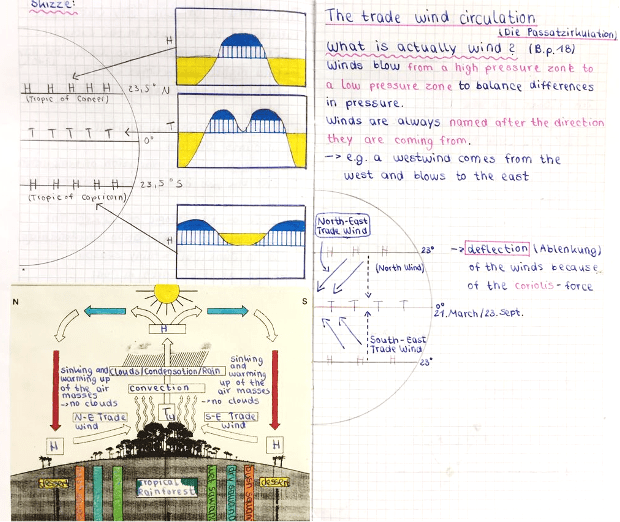 Skizze:
H
H H H H H 23,5° N
(Tropic of Cancer)
T T T T T
T
0°
H H H H H 23,5° S
(Tropic of Capricorn)
H
N
S
H
sinking and
warming up
of the air
masses
→ no clouds
Clouds/Condensation/Rain
convection
sinking
and
warming
up of the
air masses
→ no clouds
N-E Trade
wind
T
S-E Trade
wind
H
H
dessert
Tropical
Rainforest
wet savanna
dry savanna
dessert
The trade wind circulation
(Die Passatzirkulation)
What is actually wind? (B.p.18)
Winds blow from a high pressure zone to
a low pressure zone to balance differences
in pressure.
Winds are always named after the direction
they are coming from.
→ e.g. a westwind comes from the
west and blows to the east
North-East
Trade Wind
H H H 23°
(North Wind)
T T T T 0°
21. March/23. Sept.
South-East
Trade Wind
H H H 23°
→ deflection (Ablenkung)
of the winds because
of the coriolis-force